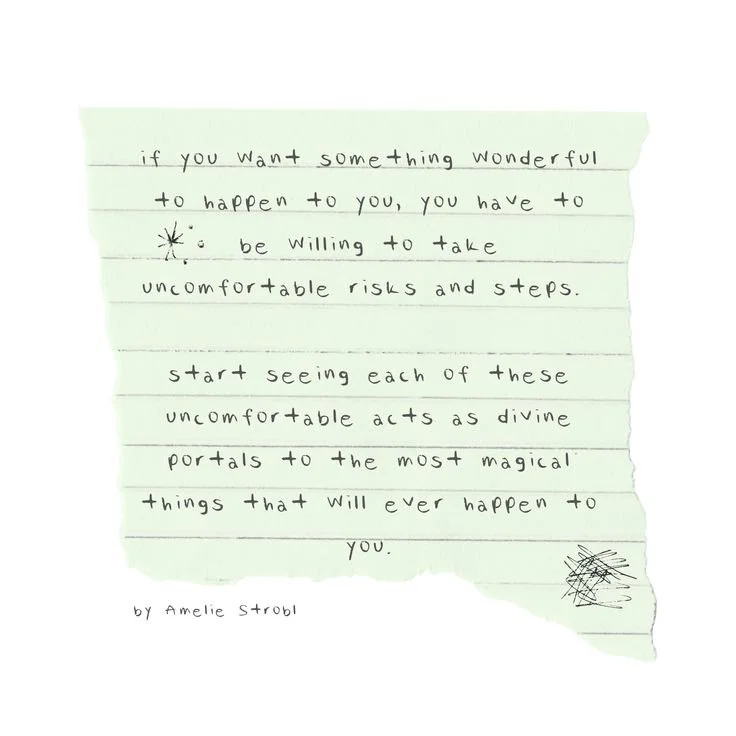 if you want something wonderful
to happen to you, you have to
be willing to take
uncomfortable risks and steps.
start seeing each of these
uncomfortable acts as divine
portals to the most magical
things that will ever happen to
you.
by Amelie Strobl